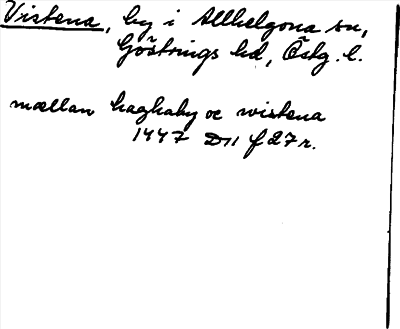 Vistena, by i Allhelgona sn,
Göstrings hd, Östg. l.
mællan haghaby oc wistena
1447 D11 f 27 r.